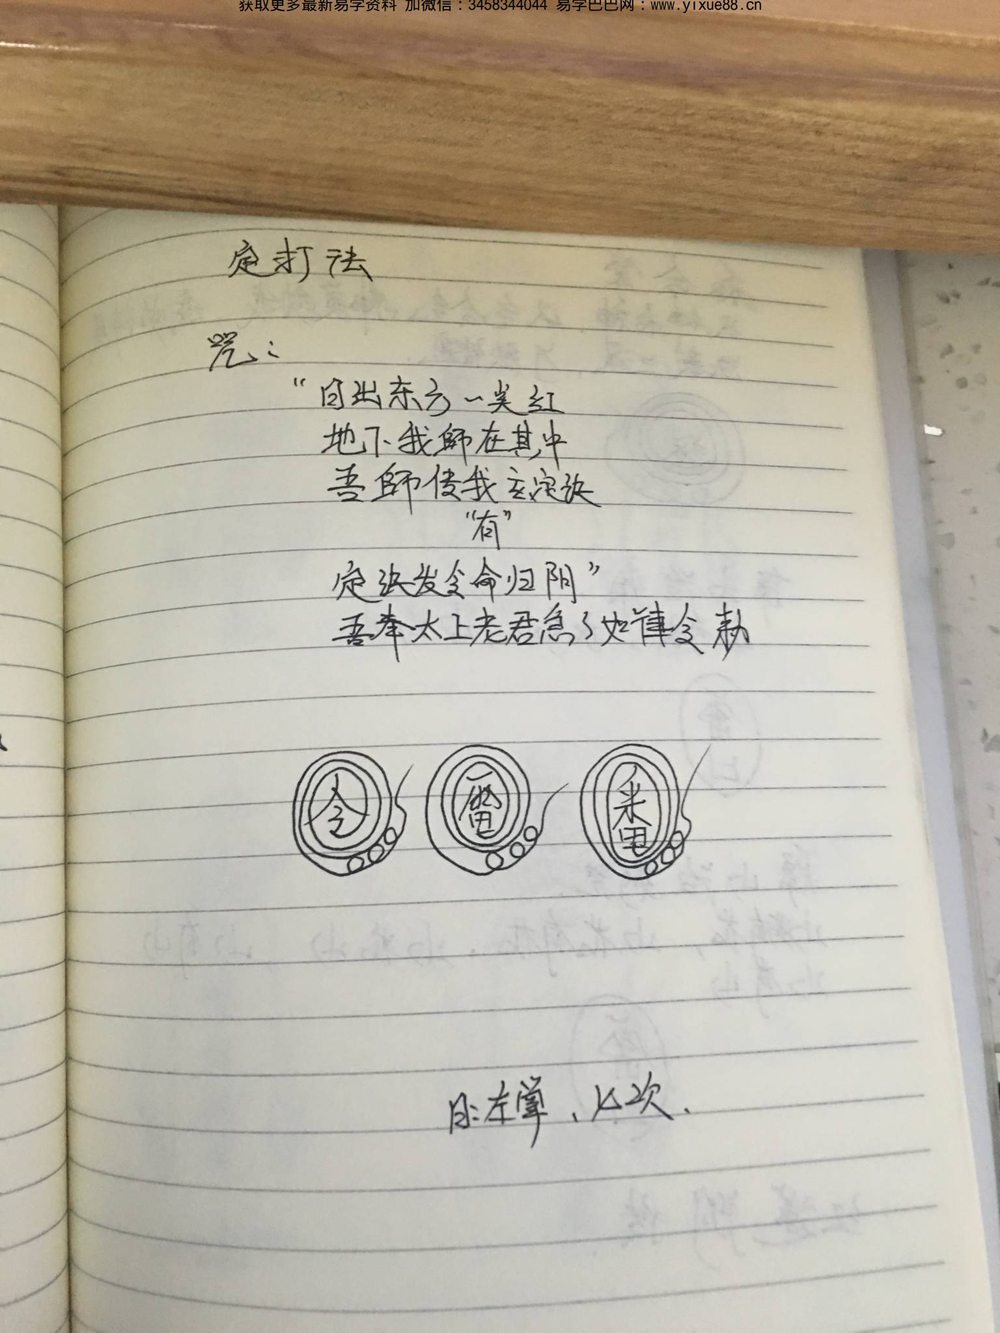 获取更多最新易学资料 加微信：3458344044 易学巴巴网：www.yixue88.cn
定打法
咒：
“日出东方一尖红
地下我師在其中
吾師传我玄定決
“有”
定決发令命归阴”
吾奉太上老君急々如律令勅
令
用左掌、次.